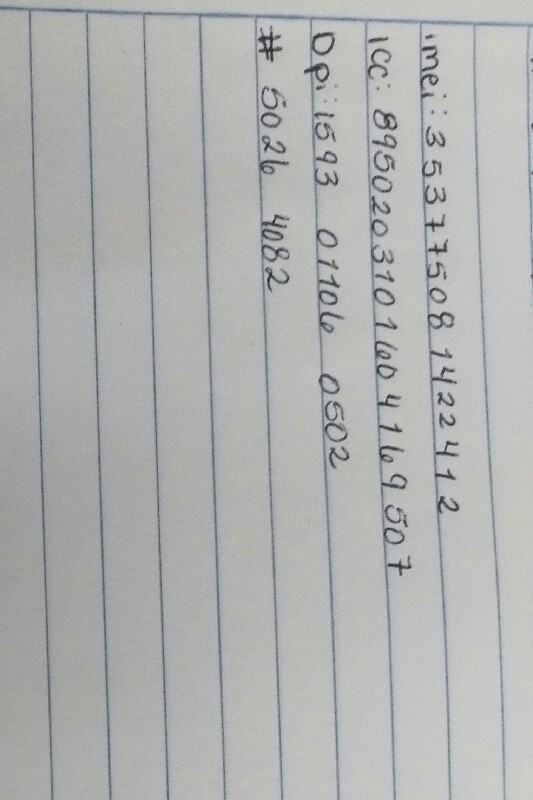 imei: 353775081422412
ICC: 8950203101604169507
Dpi: 1593 01106 0502
# 5026 4082